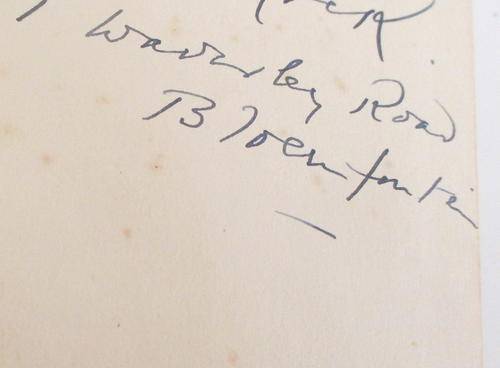 Waverley Road
Bloemfontein